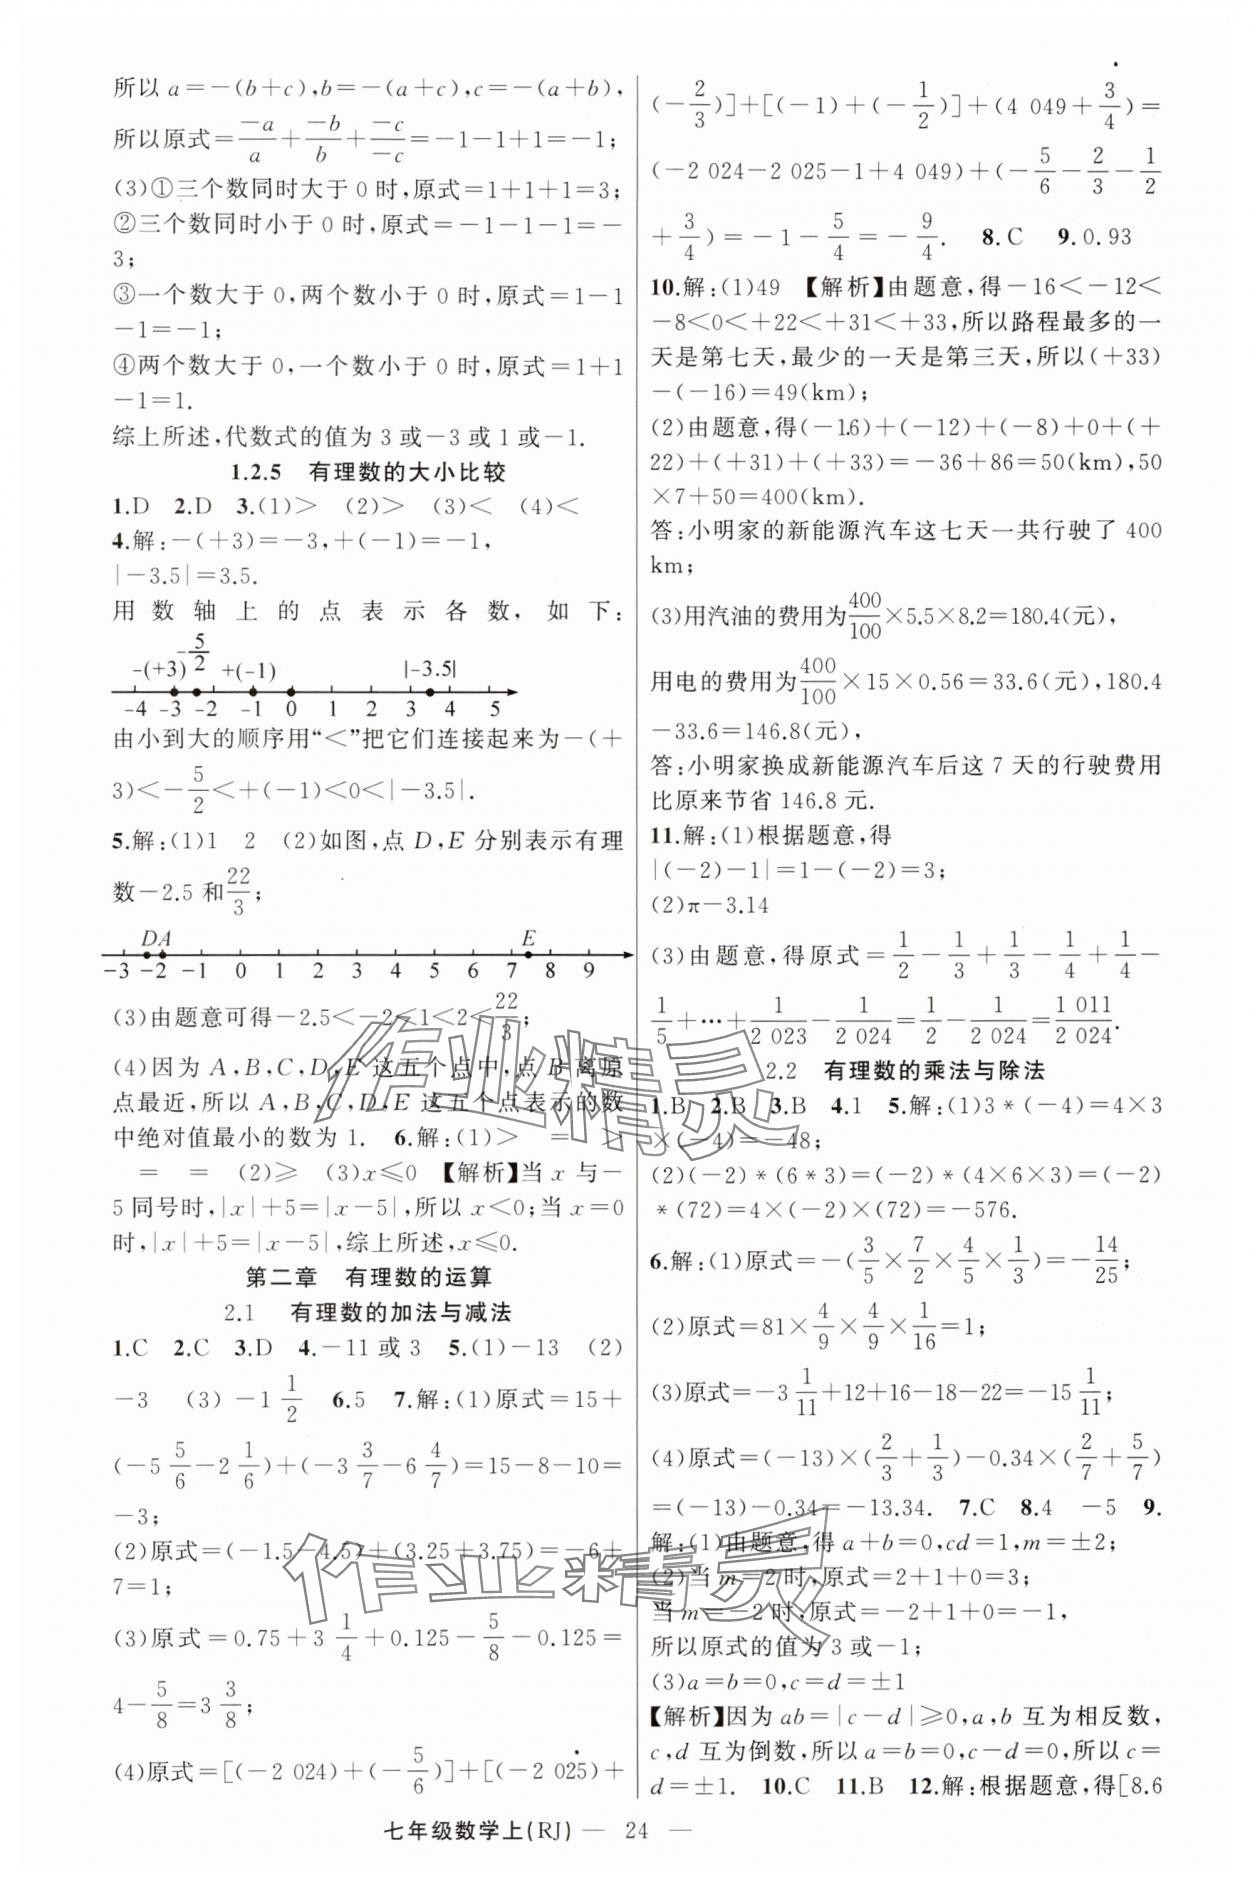 所以a=-(b+c),b=-(a+c),c=-(a+b),
所以原式=\frac{-a}{a}+\frac{-b}{b}+\frac{-c}{-c}=-1-1+1=-1;
(3)①三个数同时大于0时,原式=1+1+1=3;
②三个数同时小于0时,原式=-1-1-1=-
3;
③一个数大于0,两个数小于0时,原式=1-1
-1=-1;
④两个数大于0,一个数小于0时,原式=1+1
-1=1.
综上所述,代数式的值为3或-3或1或-1.
1.2.5 有理数的大小比较
1.D 2.D 3.(1)> (2)> (3)< (4)<
4.解:-(+3)=-3,+(-1)=-1,
|-3.5|=3.5.
用数轴上的点表示各数,如下:
-(+3) -\frac{5}{2} +(-1) |-3.5|
-4 -3 -2 -1 0 1 2 3 4 5
由小到大的顺序用“<”把它们连接起来为-(+
3)<-\frac{5}{2}<+(-1)<0<|-3.5|.
5.解:(1)1 2 (2)如图,点D,E分别表示有理
数-2.5和\frac{22}{3};
DA E
-3 -2 -1 0 1 2 3 4 5 6 7 8 9
(3)由题意可得-2.5<-2<1<2<\frac{22}{3};
(4)因为A,B,C,D,E这五个点中,点B离原
点最近,所以A,B,C,D,E这五个点表示的数
中绝对值最小的数为1. 6.解:(1)> = >
= = (2)≥ (3)x≤0 【解析】当x与-
5同号时,|x|+5=|x-5|,所以x<0;当x=0
时,|x|+5=|x-5|,综上所述,x≤0.
第二章 有理数的运算
2.1 有理数的加法与减法
1.C 2.C 3.D 4.-11或3 5.(1)-13 (2)
-3 (3)-1\frac{1}{2} 6.5 7.解:(1)原式=15+
(-5\frac{5}{6}-2\frac{1}{6})+(-3\frac{3}{7}-6\frac{4}{7})=15-8-10=
-3;
(2)原式=(-1.5-4.5)+(3.25+3.75)=-6+
7=1;
(3)原式=0.75+3\frac{1}{4}+0.125-\frac{5}{8}-0.125=
4-\frac{5}{8}=3\frac{3}{8};
(4)原式=[(-2 024)+(-\frac{5}{6})]+[(-2 025)+
(-\frac{2}{3})]+[(-1)+(-\frac{1}{2})]+(4 049+\frac{3}{4})=
(-2 024-2 025-1+4 049)+(-\frac{5}{6}-\frac{2}{3}-\frac{1}{2}
+\frac{3}{4})=-1-\frac{5}{4}=-\frac{9}{4}. 8.C 9.0.93
10.解:(1)49 【解析】由题意,得-16<-12<
-8<0<+22<+31<+33,所以路程最多的一
天是第七天,最少的一天是第三天,所以(+33)
-(-16)=49(km);
(2)由题意,得(-16)+(-12)+(-8)+0+(+
22)+(+31)+(+33)=-36+86=50(km),50
×7+50=400(km).
答:小明家的新能源汽车这七天一共行驶了400
km;
(3)用汽油的费用为\frac{400}{100}×5.5×8.2=180.4(元),
用电的费用为\frac{400}{100}×15×0.56=33.6(元),180.4
-33.6=146.8(元),
答:小明家换成新能源汽车后这7天的行驶费用
比原来节省146.8元.
11.解:(1)根据题意,得
|(-2)-1|=1-(-2)=3;
(2)π-3.14
(3)由题意,得原式=\frac{1}{2}-\frac{1}{3}+\frac{1}{3}-\frac{1}{4}+\frac{1}{4}-
\frac{1}{5}+…+\frac{1}{2 023}-\frac{1}{2 024}=\frac{1}{2}-\frac{1}{2 024}=\frac{1 011}{2 024}.
2.2 有理数的乘法与除法
1.B 2.B 3.B 4.1 5.解:(1)3*(-4)=4×3
×(-4)=-48;
(2)(-2)*(6*3)=(-2)*(4×6×3)=(-2)
*(72)=4×(-2)×(72)=-576.
6.解:(1)原式=-(\frac{3}{5}×\frac{7}{2}×\frac{4}{5}×\frac{1}{3})=-\frac{14}{25};
(2)原式=81×\frac{4}{9}×\frac{4}{9}×\frac{1}{16}=1;
(3)原式=-3\frac{1}{11}+12+16-18-22=-15\frac{1}{11};
(4)原式=(-13)×(\frac{2}{3}+\frac{1}{3})-0.34×(\frac{2}{7}+\frac{5}{7})
=(-13)-0.34=-13.34. 7.C 8.4 -5 9.
解:(1)由题意,得a+b=0,cd=1,m=±2;
(2)当m=2时,原式=2+1+0=3;
当m=-2时,原式=-2+1+0=-1,
所以原式的值为3或-1;
(3)a=b=0,c=d=±1
【解析】因为ab=|c-d|≥0,a,b互为相反数,
c,d互为倒数,所以a=b=0,c-d=0,所以c=
d=±1. 10.C 11.B 12.解:根据题意,得[8.6
七年级数学上(RJ) — 24 —
作业精灵
作业精灵